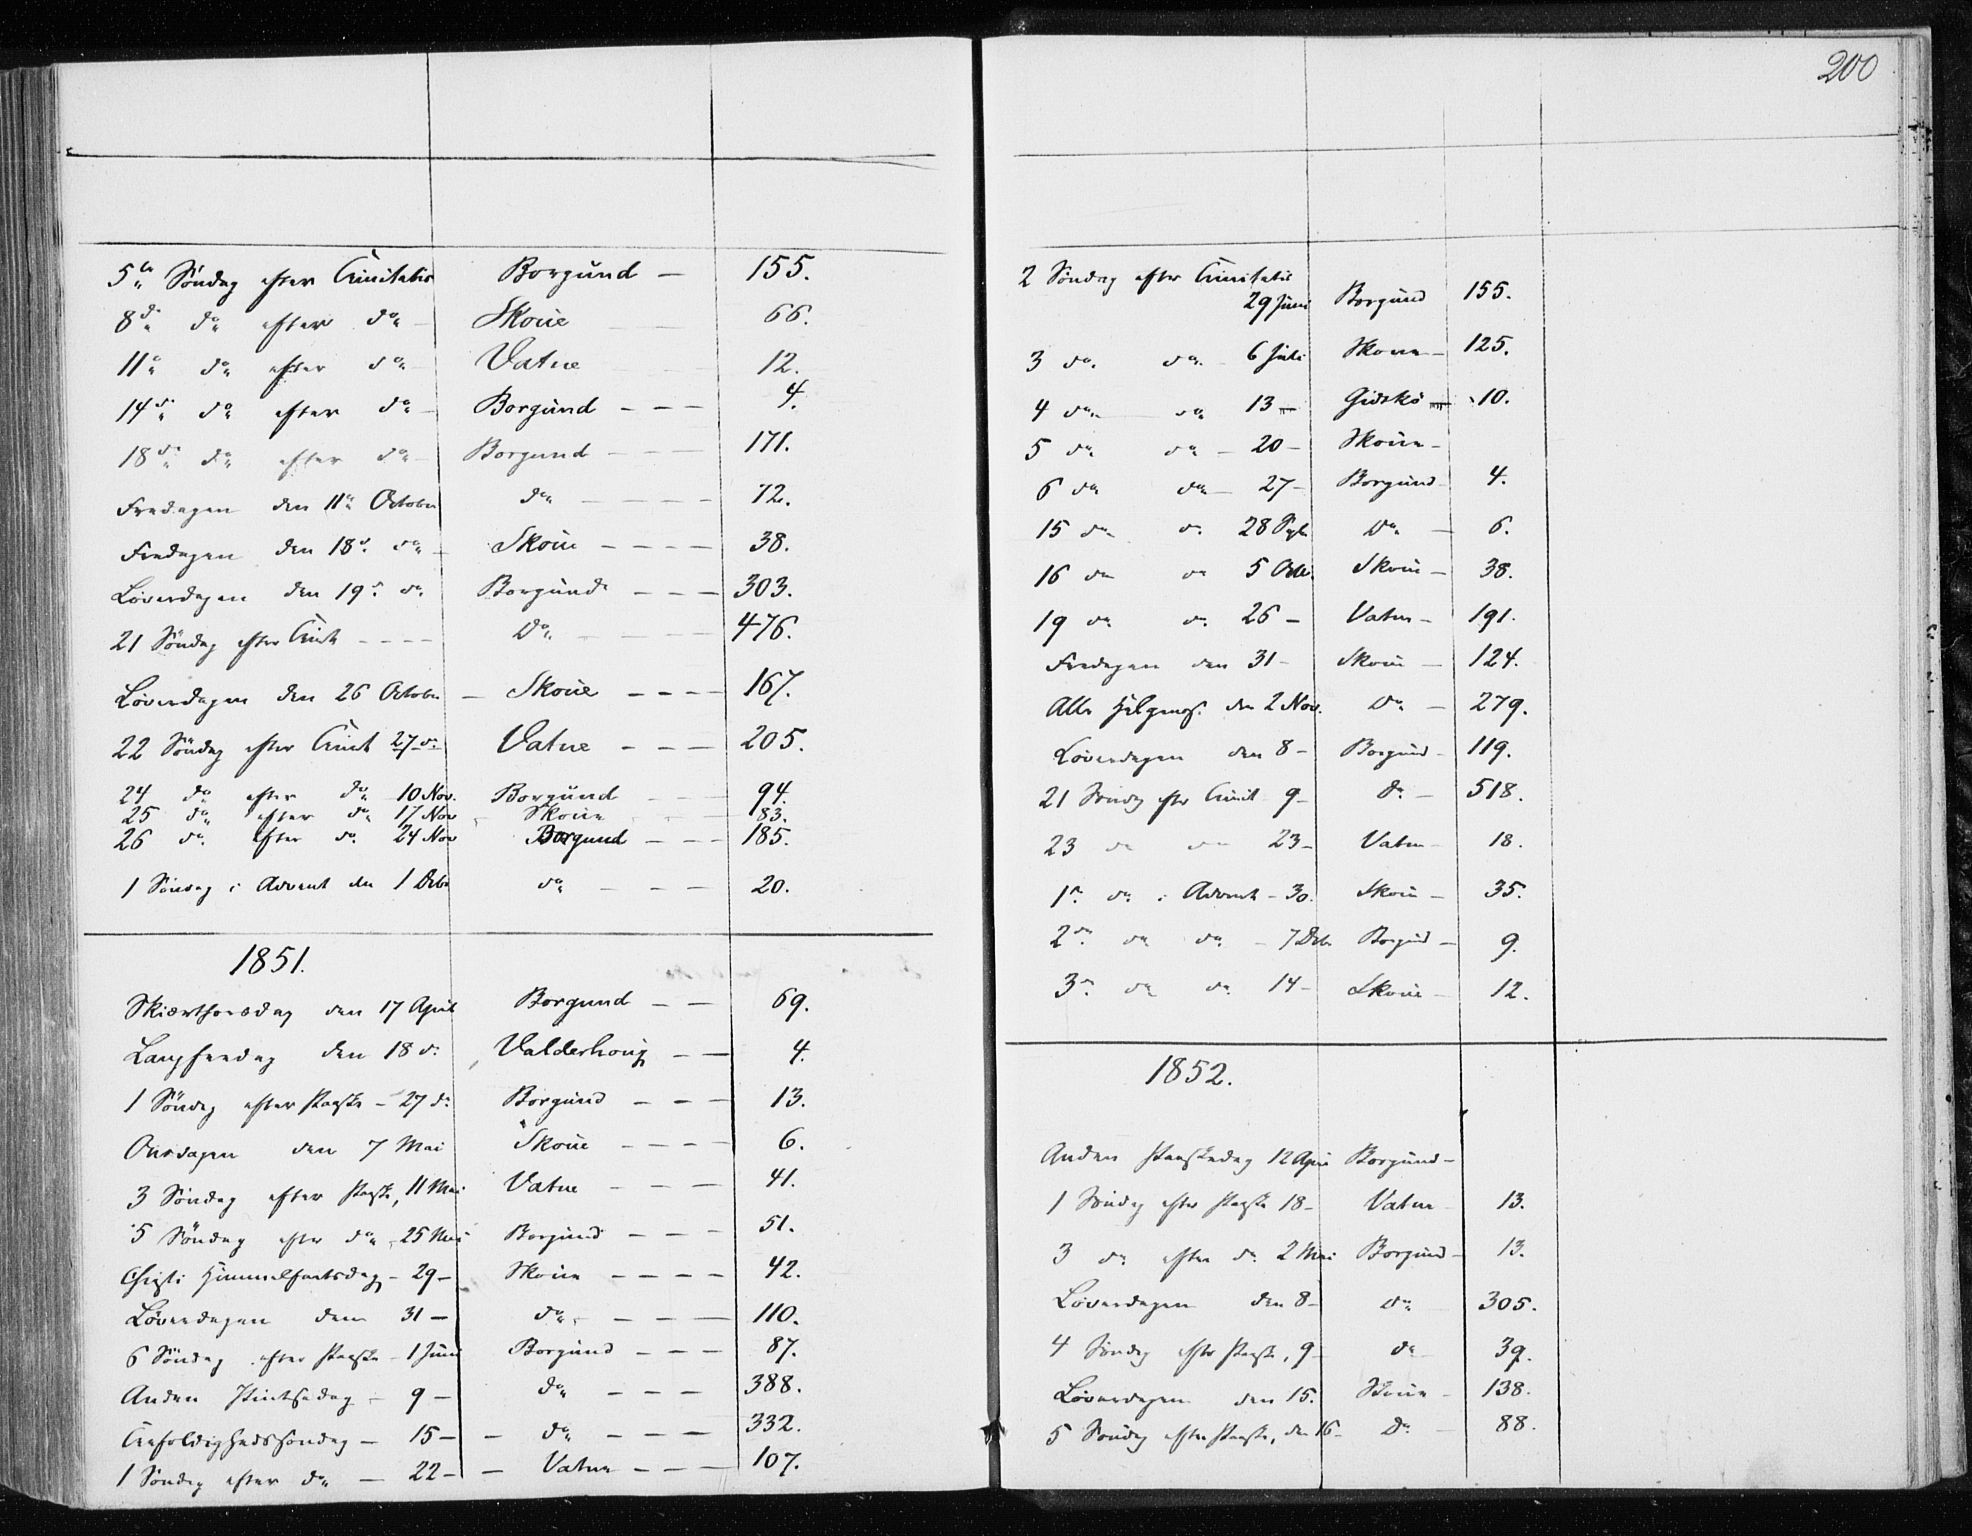 5te Søndag efter Trinitatis Borgund — 155.
8de do efter do — Skoue 66.
11te do efter do Vatne 12.
14de do efter do — Borgund — — — 4.
18de do efter do — Borgund — — — 171.
Fredagen den 11te October do — — — — 72.
Fredagen den 18de do — Skoue — — — — 38.
Løverdagen den 19de do Borgund — — — 303.
21 Søndag efter Trinit — — — — Do — — — — 476.
Løverdagen den 26 October — Skoue — — — — 167.
22 Søndag efter Trinit 27 do Vatne — — — 205.
24 do efter do 10 Nov. Borgund — — 94.
25 do efter do 17 Nov Skoue 83.
26 do efter do 24 Nov Borgund — — — 185.
1 Søndag i Advent den 1 Debr do — — — 20.
1851.
Skiærthorsdag den 17 April Borgund — — 69.
Langfredag den 18 do Valderhoug — — 4.
1 Søndag efter Paaske — 27 do Borgund — — — 13.
Onsdagen den 7 Mai Skoue — — — — 6.
3 Søndag efter Paaske, 11 Mai Vatne — — — 41.
5 Søndag efter do — 25 Mai Borgund — — — 51.
Christi Himmelfartsdag — 29 — Skoue — — — — 42.
Løverdagen den 31 — do — — — — 110.
6 Søndag efter Paaske — 1 Juni Borgund — — — 87.
Anden Pintsedag — 9 — do — — — 388.
Trefoldighedssøndag — 15 — — do — — — — 332.
1 Søndag efter do — 22 — — Vatne — — — 107.
200
2 Søndag efter Trinitatis
29 Juni Borgund 155.
3 do do — 6 Juli Skoue — 125.
4 do do 13 — Gidskø — 10.
5 do do — 20 — Skoue —
6 do do — 27 — Borgund — 4.
15 do do 28 Sept Do — 6.
16 do do 5 Octr. Skoue — 38.
19 do do 26 — Vatne — 191.
Fredagen den 31 — Skoue — 124.
Alle Helgens. den 2 Nov. Do — 279.
Løverdagen den 8 — Borgund — 119.
21 Søndag efter Trinit — 9 — do — 518.
23 do do 23 — Vatne — 18.
1ste do i Advent — 30. Skoue — 35.
2den do do — 7 Debr Borgund — 9.
3de do do 14 — Skoue — 12.
1852.
Anden Paaskedag 12 April Borgund —
1 Søndag efter Paaske 18 — Vatne 13.
3 do efter do 2 Mai Borgund — 13.
Løverdagen den 8 — do 305.
4 Søndag efter Paaske, 9 — do 39.
Løverdagen den 15. Skoue — 138.
5 Søndag efter Paaske, den 16 — Do — 88.